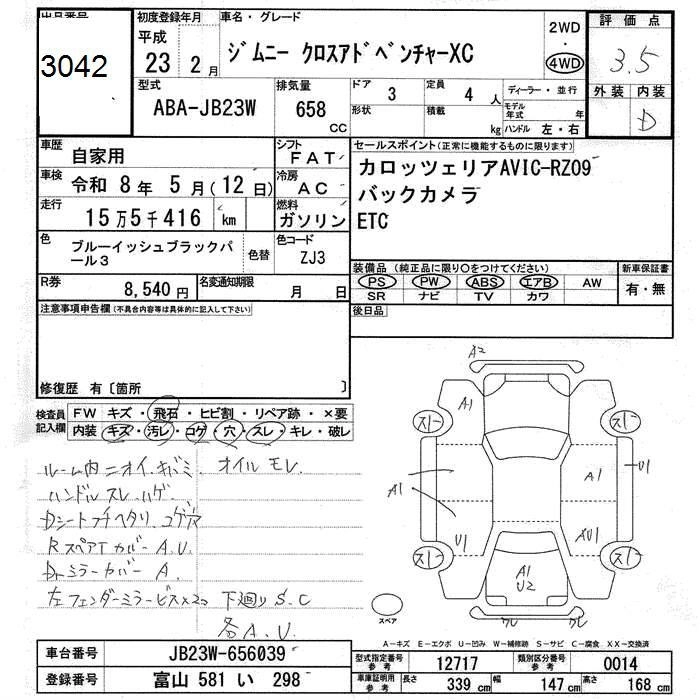 出品番号 初度登録年月 車名・グレード 評価点
3042 平成 23 2月 ジムニー クロスアドベンチャーXC 2WD ・ 4WD 3.5
型式 排気量 ドア 3 定員 4 人 ディーラー・並行 外装 内装
ABA-JB23W 658 CC 形状 積載 kg モデル年式 年 ハンドル 左・右 D
車歴 自家用 シフト FAT セールスポイント(正常に機能するものに限ります)
車検 令和 8年 5月(12日) 冷房 AC カロッツェリアAVIC-RZ09
走行 15万5千416 km 燃料 ガソリン バックカメラ
ETC
色 ブルーイッシュブラックパール3 色替 色コード ZJ3
装備品(純正品に限り○をつけてください) 新車保証書
R券 8,540円 名変通知期限 月 日 PS PW ABS エアB AW 有・無
SR ナビ TV カワ
注意事項申告欄(不具合内容等は具体的に記入して下さい) 後日品
修復歴 有〔箇所 〕
検査員記入欄 FW キズ・飛石・ヒビ割・リペア跡・×要
内装 キズ・汚レ・コゲ・穴・スレ・キレ・破レ
ルーム内ニオイ、キバミ、オイルモレ
ハンドルスレ、ハゲ
Dシートフチヘタリ、コゲ穴
RスペアTカバーA.U.
DrミラーカバーA
左フェンダーミラービス×2コ 下廻りS.C
各A.U.
A2
A1
スリ スリ
A1 A1 U1
U1 AU1
スリ スリ
A1
U2
スペア
A-キズ E-エクボ U-凹み W-補修跡 S-サビ C-腐食 XX-交換済
車台番号 JB23W-656039 型式指定番号 参考 12717 類別区分番号 参考 0014
登録番号 富山 581 い 298 車庫証明用 参考 長さ 339 cm 幅 147 cm 高さ 168 cm